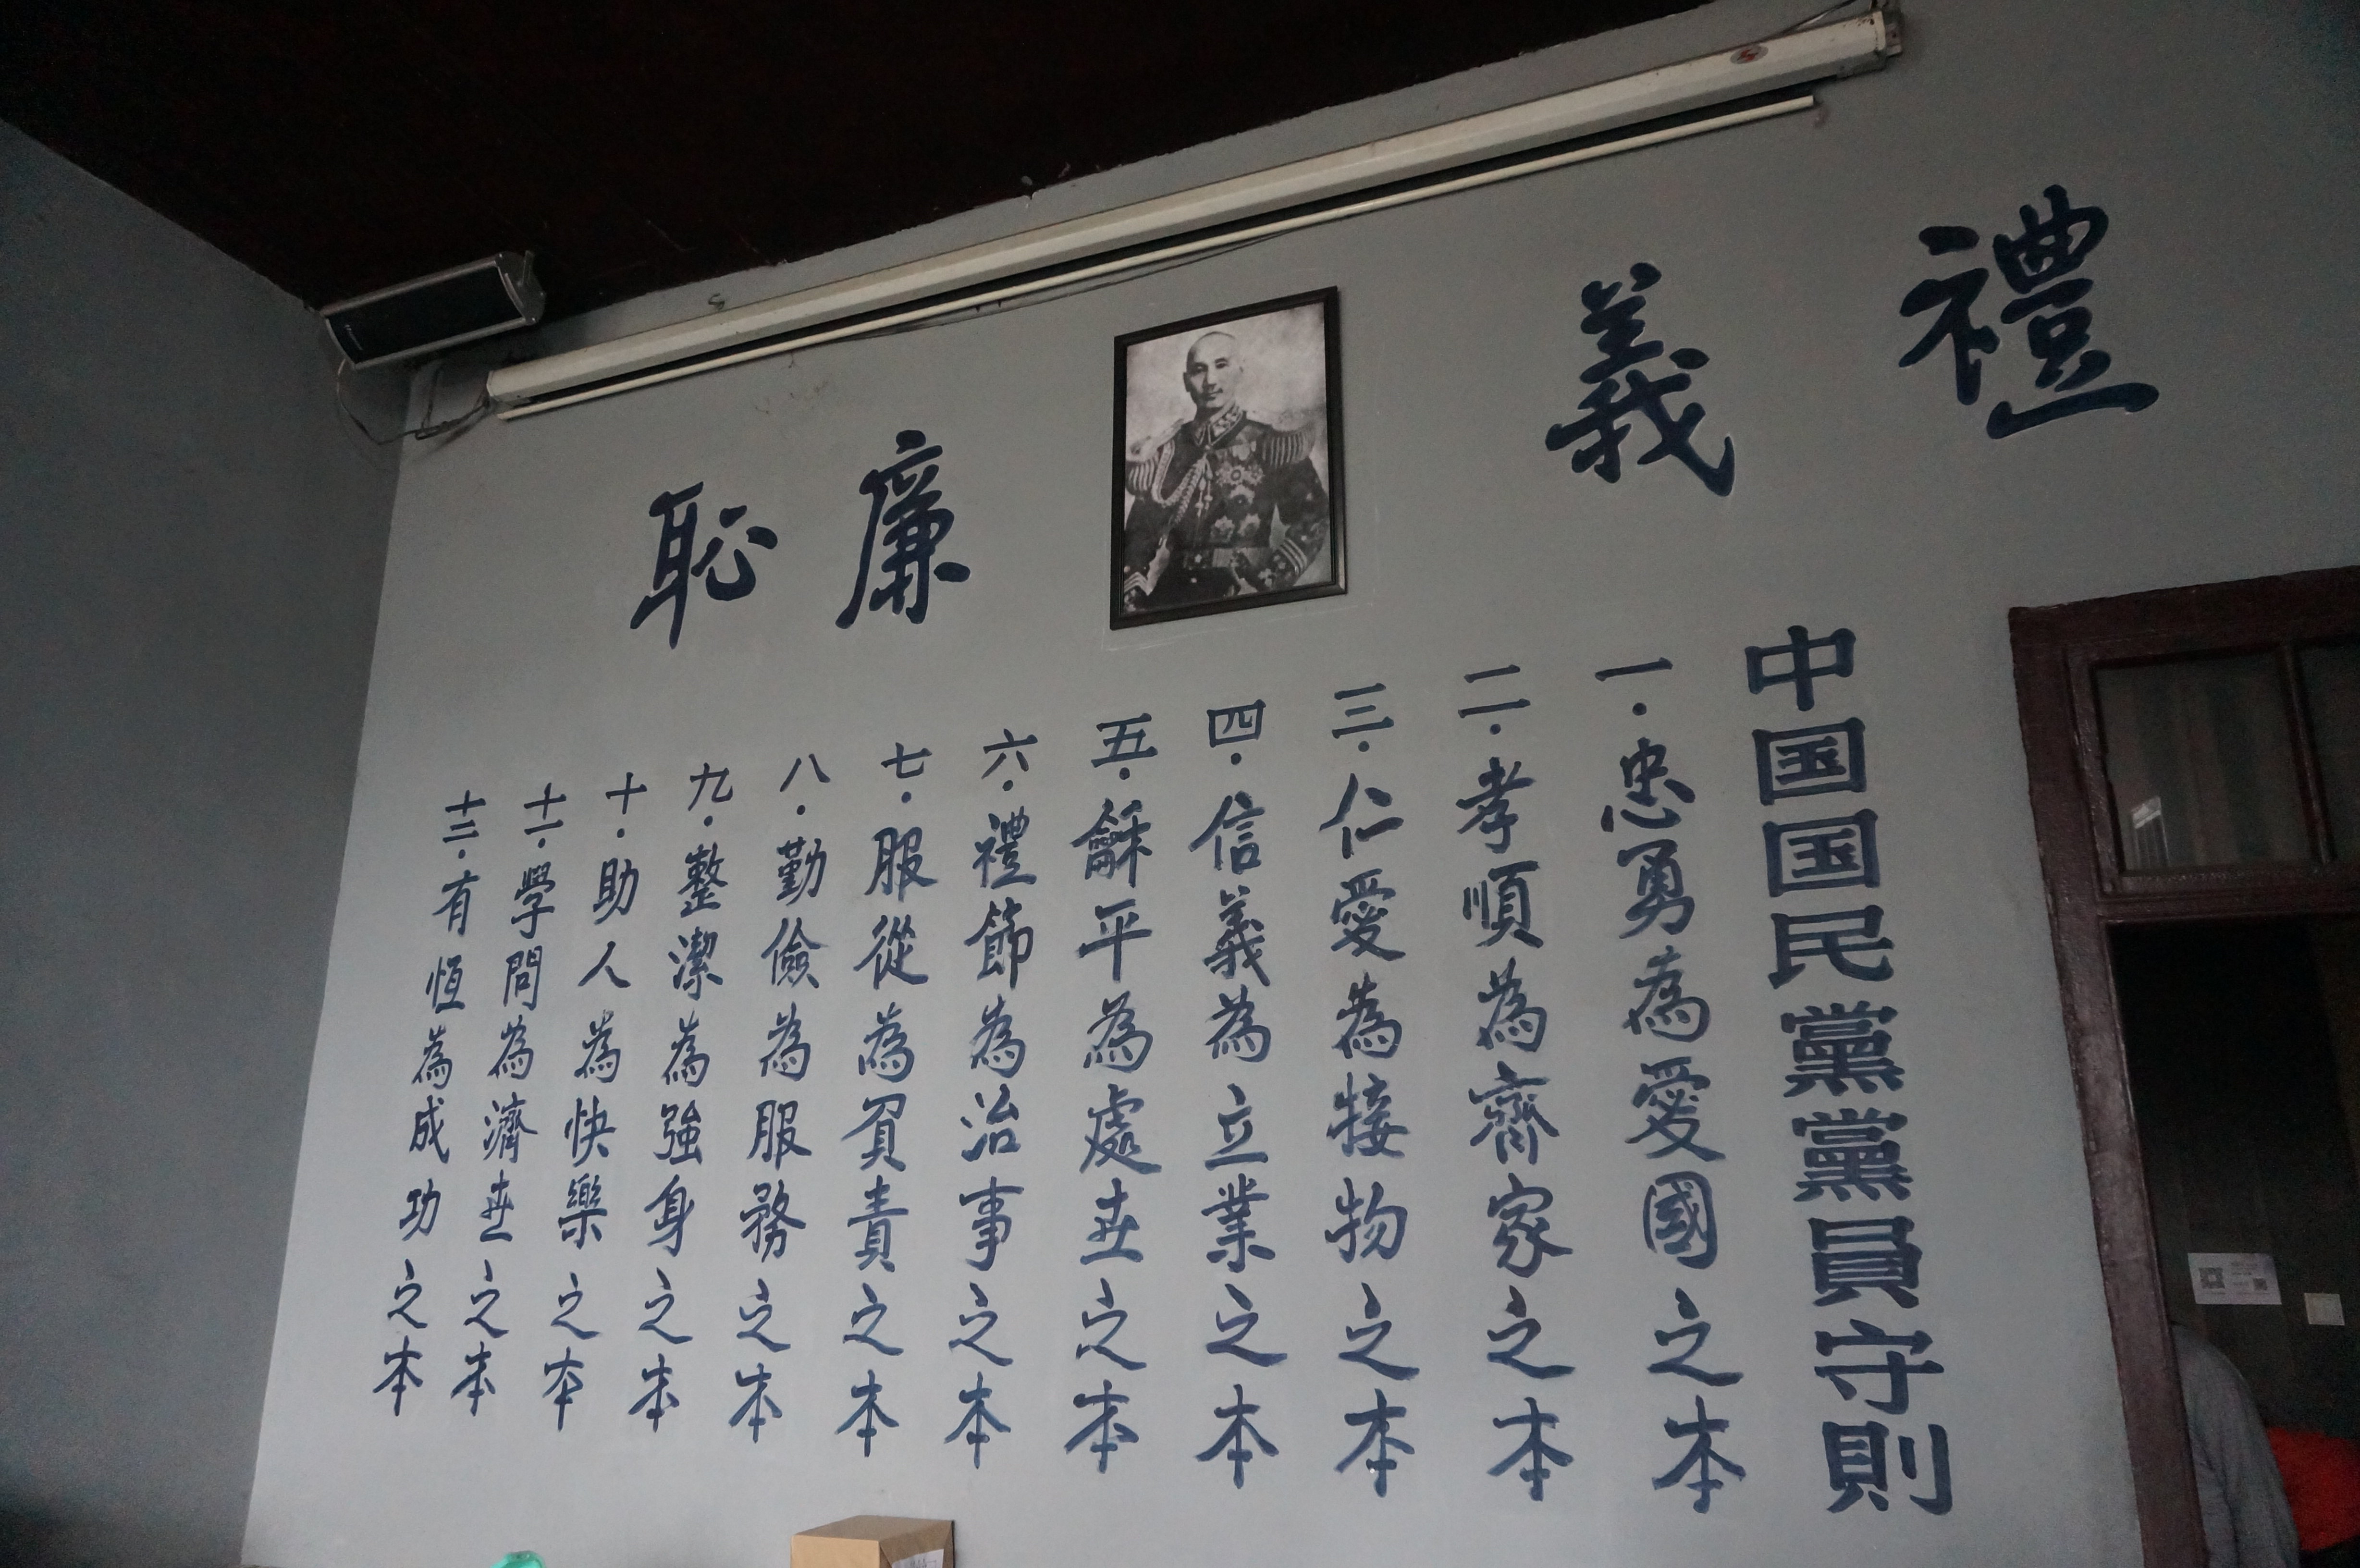 禮 義 廉 恥
中国国民黨黨員守則
一·忠勇為愛國之本
二·孝順為齊家之本
三·仁愛為接物之本
四·信義為立業之本
五·龢平為處世之本
六·禮節為治事之本
七·服從為負責之本
八·勤儉為服務之本
九·整潔為強身之本
十·助人為快樂之本
十一·學問為濟世之本
十二·有恆為成功之本